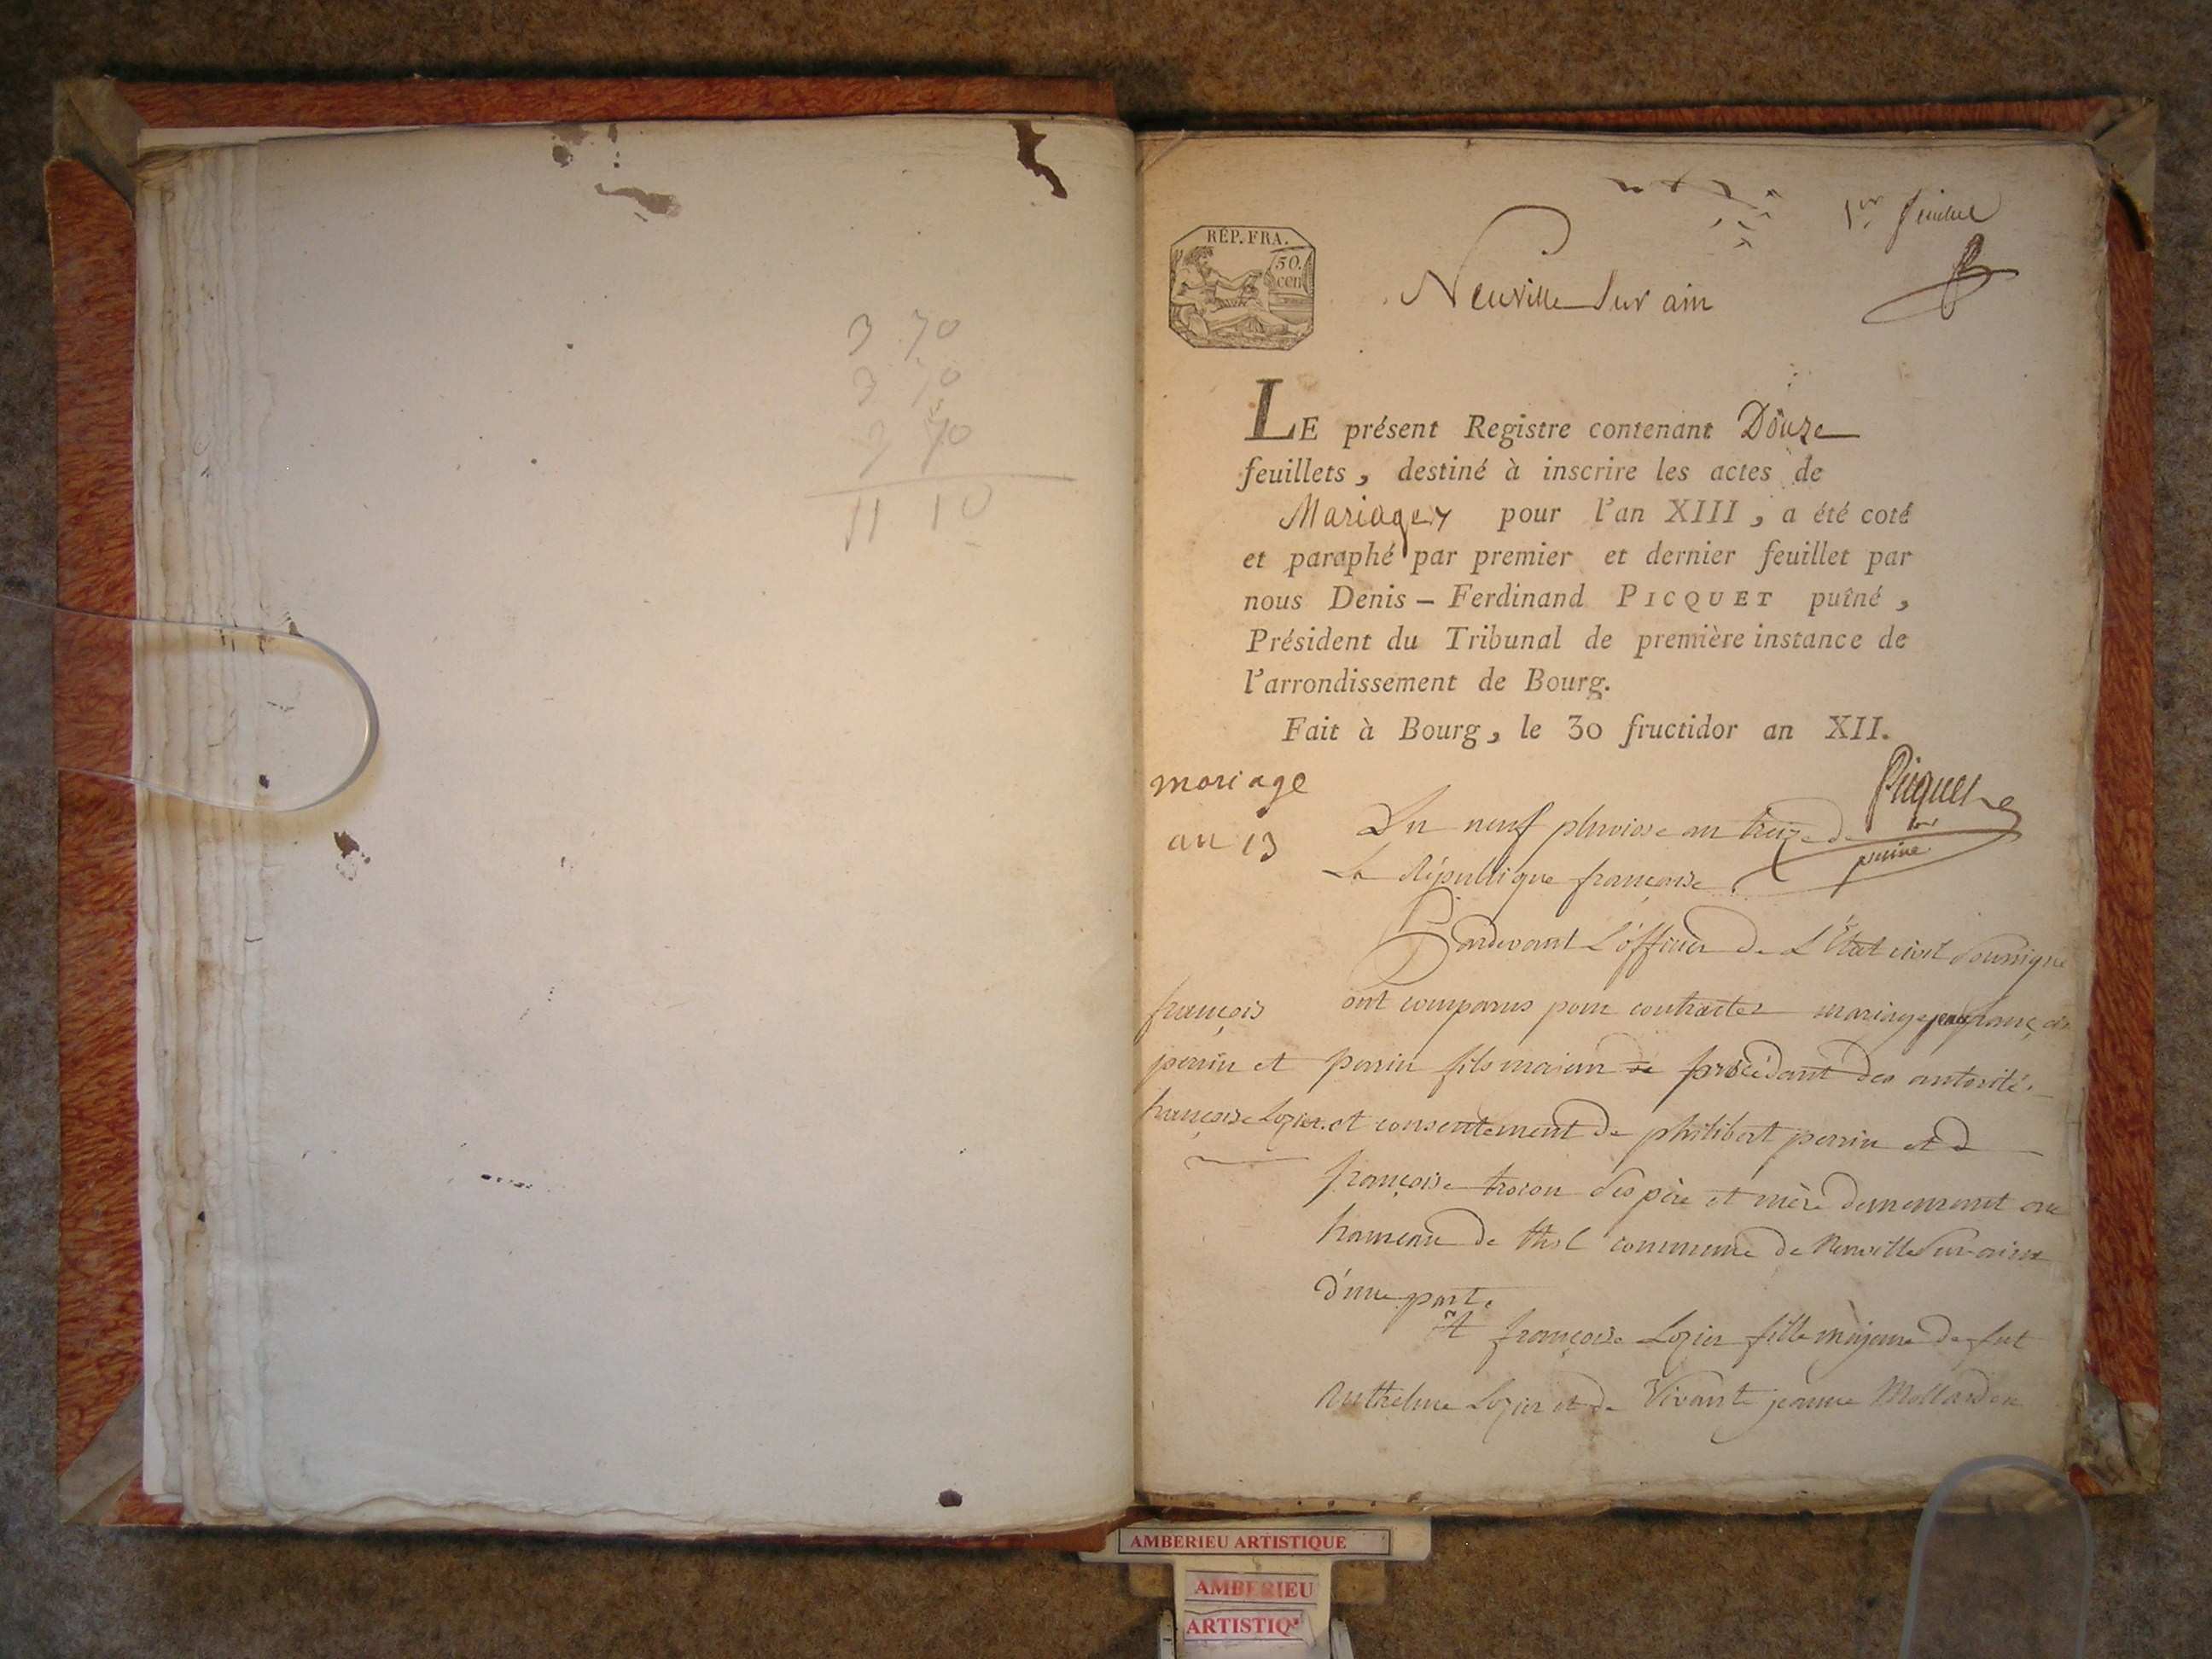 3 70
3 70
3 70
11 10
1er feuillet
RÉP. FRA.
50.
cen
Neuville Sur ain
LE présent Registre contenant Douze
feuillets, destiné à inscrire les actes de
Mariages pour l'an XIII, a été coté
et paraphé par premier et dernier feuillet par
nous Denis-Ferdinand PICQUET puîné,
Président du Tribunal de première instance de
l'arrondissement de Bourg.
Fait à Bourg, le 30 fructidor an XII.
Picquet
puine
mariage
an 13
Du neuf pluviose an treize de
La République françoise.
Pardevant L'officier de L'Etat civil Soussigné
ont comparus pour contracter mariage jean françois
françois
perrin et
françoise Lozier.
perrin fils majeur de procédant des autorités
et consentement de philibert perrin et d
françoise trocon ses père et mère demeurant au
hameau de thol commune de Neuville Sur ain
d'une part.
et françoise Lozier fille majeure de fut
Anthelme Lozier et de Vivante jeanne Mollard